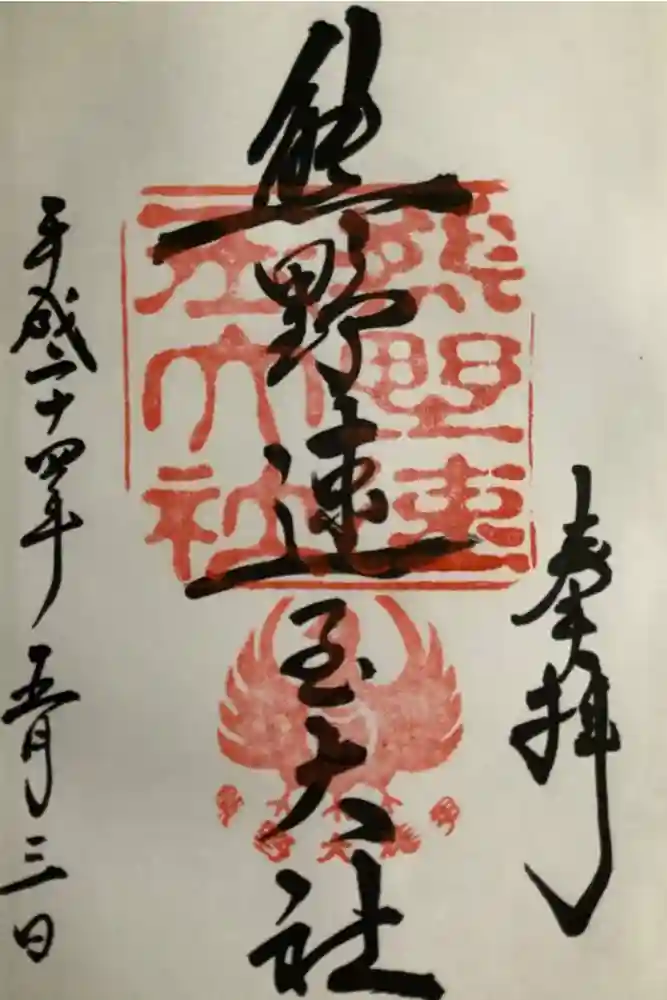 奉拝
熊野速玉大社
熊野速玉大社
平成二十四年五月三日